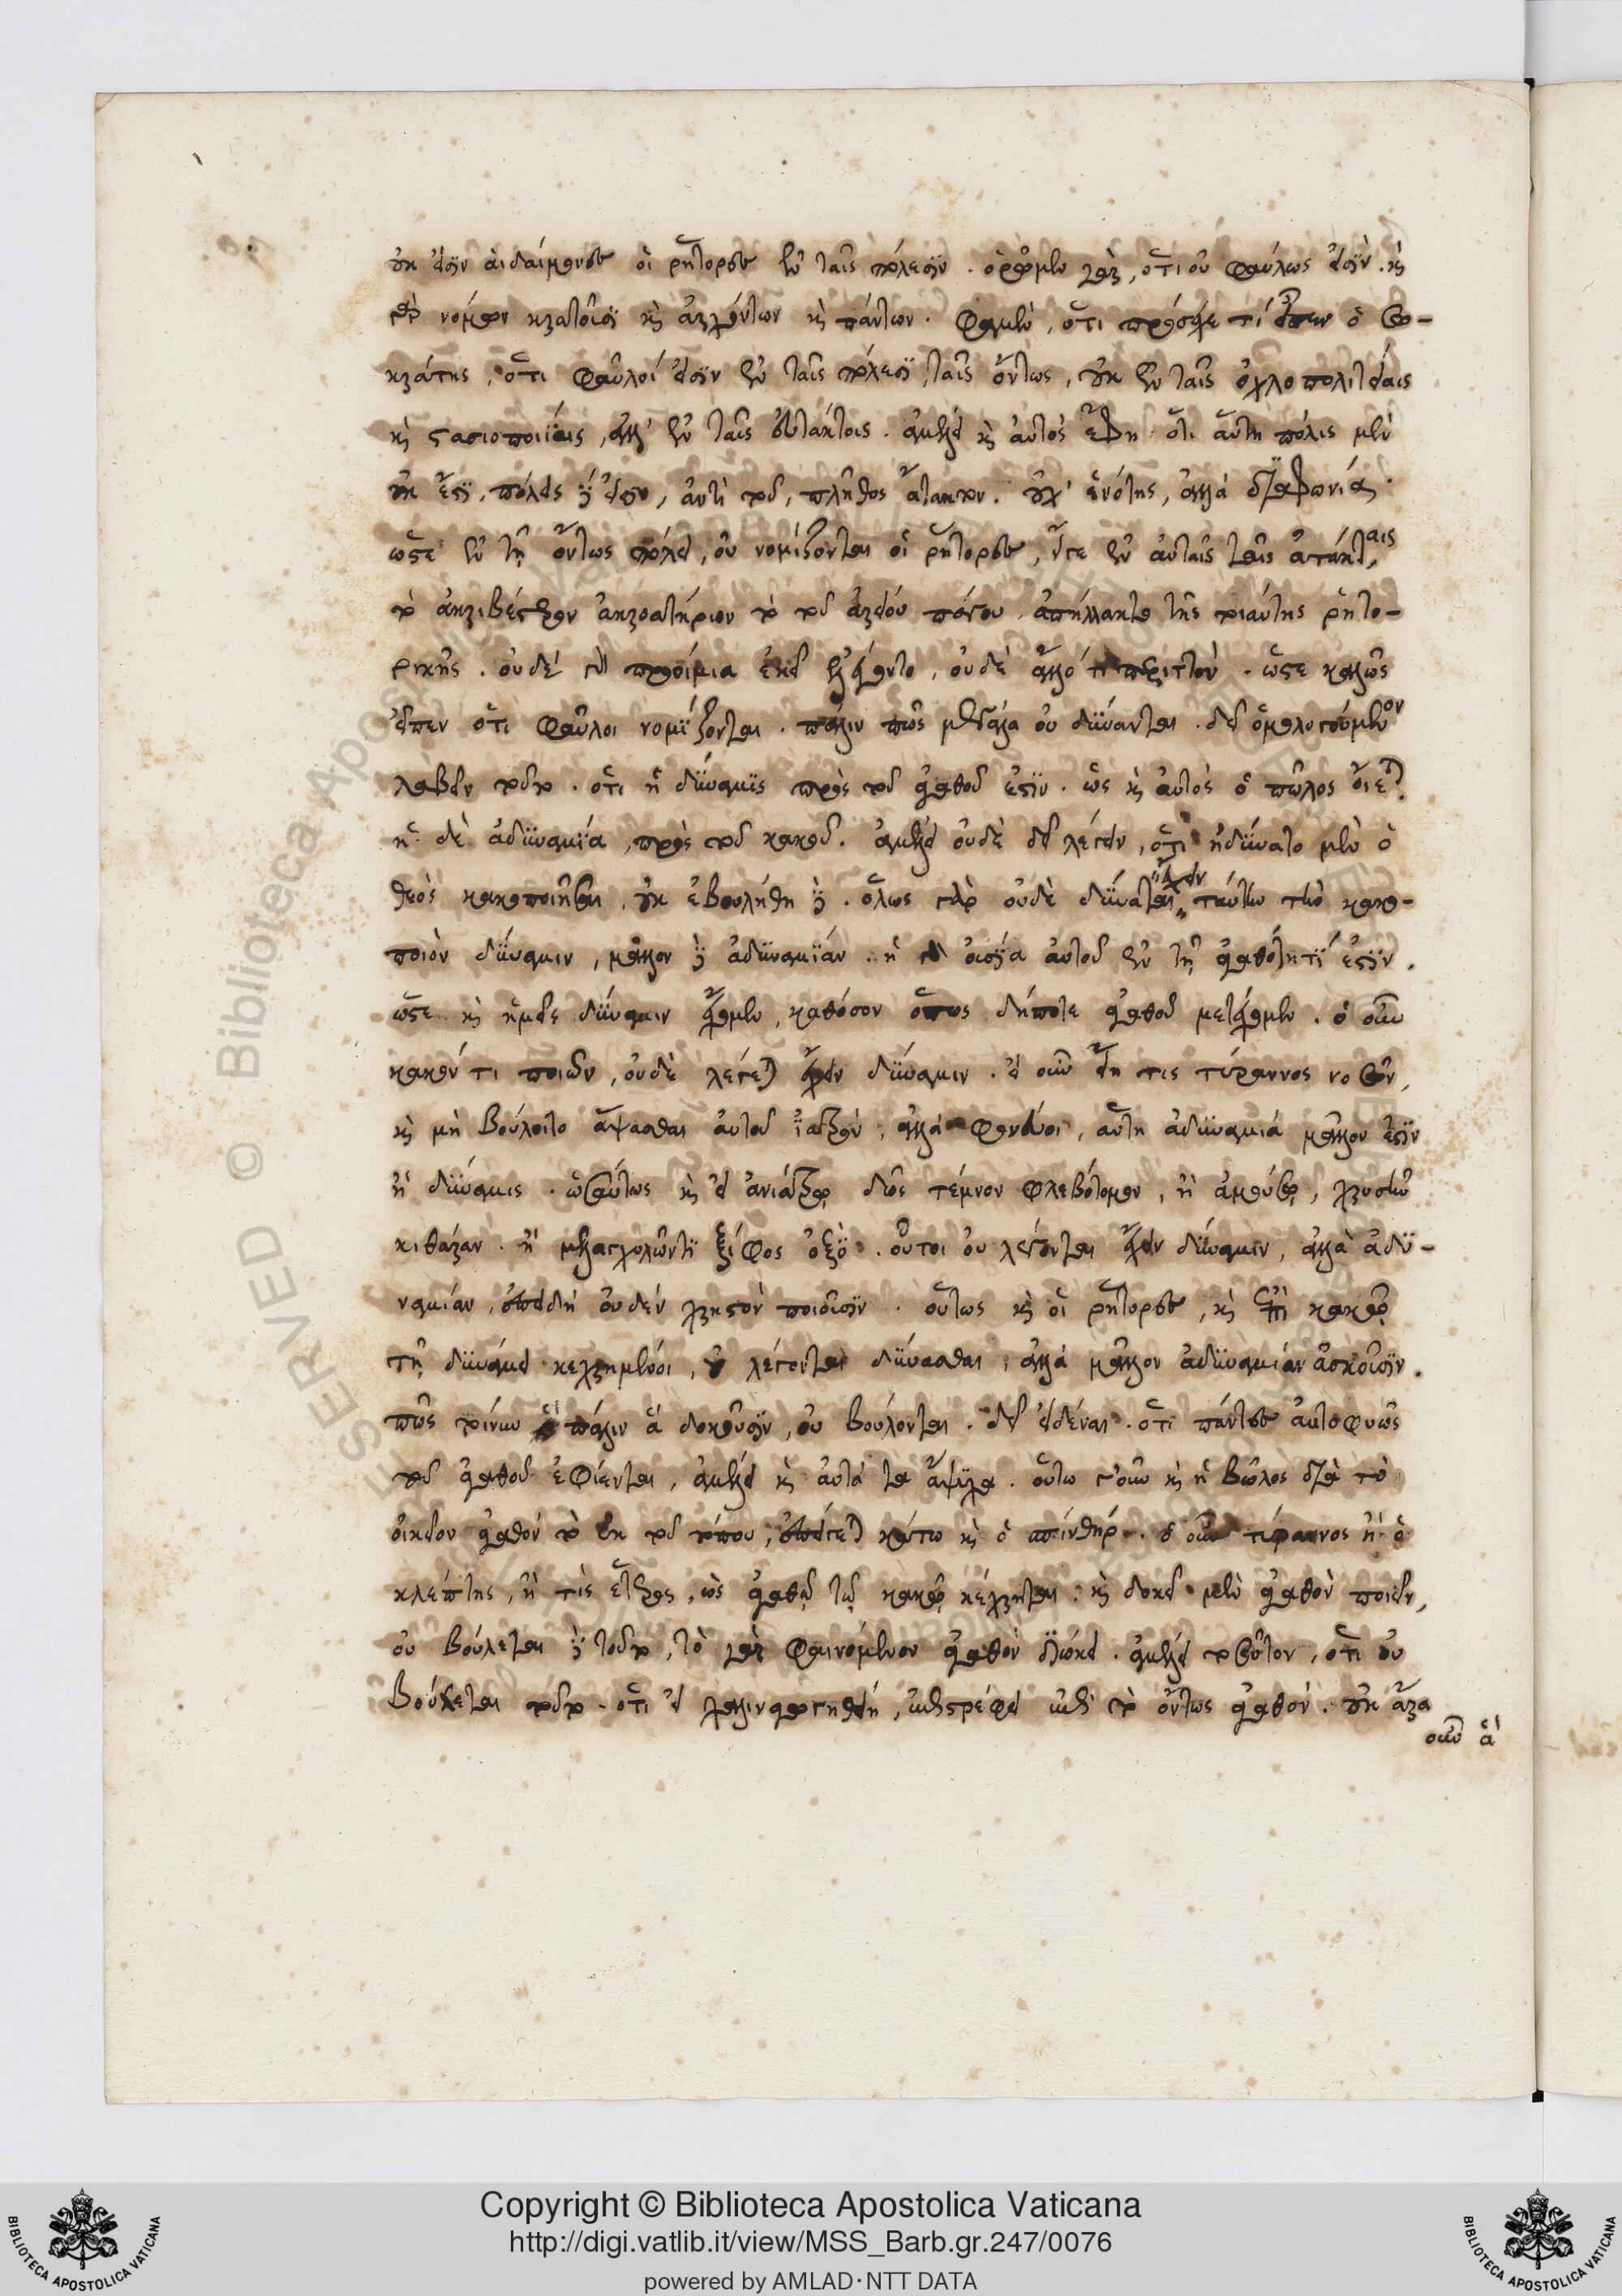 οὐκ εἰσὶν εὐδαίμονες οἱ ῥήτορες ἐν ταῖς πόλεσιν. ὁρῶμεν γὰρ, ὅτι οὐ φαύλως εἰσὶν. καὶ
νόμων κρατοῦσι καὶ ἀρχόντων καὶ πάντων. φαμὲν, ὅτι πρόσχες τί εἶπεν ὁ Σω-
κράτης, ὅτι φαῦλοί εἰσιν ἐν ταῖς πόλεσι, ταῖς ὄντως, οὐκ ἐν ταῖς ὀχλοπολιτείαις
καὶ στασιοποιίαις, ἀλλ' ἐν ταῖς εὐτάκτοις. ἀμέλει καὶ αὐτὸς ἔφη ὅτι αὕτη πόλις μὲν
οὐκ ἔστι, πόλεις δὲ εἰσιν, ἀντὶ τοῦ, πλῆθος ἄτακτον. οὐχ' ἑνότης, ἀλλὰ διαφωνία.
ὥστε ἐν τῇ ὄντως πόλει, οὐ νομίζονται οἱ ῥήτορες, οὔτε ἐν αὐταῖς ταῖς ἀτάκταις
τὸ ἀκριβέστερον ἀκροατήριον τὸ τοῦ ἀρείου πάγου ἀπήλλακτο τῆς τοιαύτης ῥητο-
ρικῆς. οὐδὲ γὰρ προοίμια ἐκεῖ ἐλέγοντο, οὐδὲ ἄλλό τι περιττὸν. ὥστε καλῶς
εἶπεν ὅτι φαῦλοι νομίζονται. πάλιν πῶς μεγάλα οὐ δύνανται. δεῖ ὁμολογούμενον
λαβεῖν τοῦτο. ὅτι ἡ δύναμις πρὸς τοῦ ἀγαθοῦ ἐστιν. ὡς καὶ αὐτὸς ὁ πῶλος οἴεται.
ἡ δὲ ἀδυναμία, πρὸς τοῦ κακοῦ. ἀμέλει οὐδὲ δεῖ λέγειν, ὅτι ἠδύνατο μὲν ὁ
θεὸς κακοποιῆσαι, οὐκ ἐβουλήθη δὲ. ὅλως γὰρ οὐδὲ δύναται ἔχειν ταύτην τὴν κακο-
ποιὸν δύναμιν, μᾶλλον δὲ ἀδυναμίαν. ἡ γὰρ οὐσία αὐτοῦ ἐν τῇ ἀγαθότητί ἐστιν.
ὥστε καὶ ἡμεῖς δύναμιν ἔχομεν, καθόσον ὅπως δήποτε ἀγαθοῦ μετέχομεν. ὁ οὖν
κακόν τι ποιῶν, οὐδὲ λέγεται ἔχειν δύναμιν. εἰ οὖν εἴη τις τύραννος νοσῶν,
καὶ μὴ βούλοιτο ἅψασθαι αὐτοῦ ἰατρὸν, ἀλλὰ φονεύοι, αὕτη ἀδυναμία μᾶλλον ἐστὶν
ἢ δύναμις. ὡσαύτως καὶ εἰ ἀνιάτρῳ δῷς τέμνον φλεβότομον, ἢ ἀμούσῳ, χρυσῆν
κιθάραν. ἢ μελαγχολῶντι ξίφος ὀξύ. οὗτοι οὐ λέγονται ἔχειν δύναμιν, ἀλλὰ ἀδυ-
ναμίαν, ἐπειδὴ οὐδὲν χρηστὸν ποιοῦσιν. οὕτως καὶ οἱ ῥήτορες, καὶ ἐπὶ κακῷ
τῇ δυνάμει κεχρημένοι, οὐ λέγονται δύνασθαι, ἀλλὰ μᾶλλον ἀδυναμίαν ἀσκοῦσιν.
πῶς τοίνυν πάλιν ἃ δοκοῦσιν, οὐ βούλονται. δεῖ εἰδέναι ὅτι πάντες αὐτοφυῶς
τοῦ ἀγαθοῦ ἐφίενται, ἀμέλει καὶ αὐτὰ τὰ ἄψυχα. οὕτω γοῦν καὶ ἡ βῶλος διὰ τὸ
οἰκεῖον ἀγαθόν τὸ ἐκ τοῦ τόπου, ἐπείγεται κάτω καὶ ὁ σπινθήρ. ὁ οὖν τύραννος ἢ ὁ
κλέπτης, ἢ τὶς ἕτερος, ὡς ἀγαθῷ τῷ κακῷ κέχρηται. καὶ δοκεῖ μὲν ἀγαθὸν ποιεῖν,
οὐ βούλεται δὲ τοῦτο, τὸ γὰρ φαινόμενον ἀγαθὸν διώκει. ἀμέλει τοσοῦτον, ὅτι οὐ
βούλεται τοῦτο. ὅτι εἰ χαλιναγωγηθείη, ἐπιστρέφει ἐπὶ τὸ ὄντως ἀγαθὸν. οὐκ ἄρα
οὖν ἃ
Copyright © Biblioteca Apostolica Vaticana
http://digi.vatlib.it/view/MSS_Barb.gr.247/0076
powered by AMLAD·NTT DATA
BIBLIOTECA APOSTOLICA VATICANA
BIBLIOTECA APOSTOLICA VATICANA